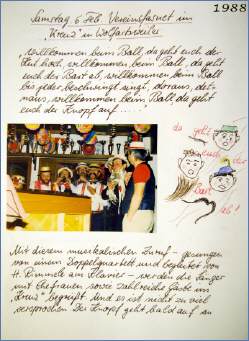 1988
Samstag 6. Feb. Vereinsfasnet im
"Kreuz" in Wolfartsweiler
"Willkommen beim Ball, da geht euch der
Hut hoch, willkommen beim Ball, da geht
euch der Bart ab, willkommen beim Ball
bis jeder beschwingt singt,
willkommen beim Ball, da geht
euch der Knopf auf ....."
da geht
euch der
Bart
ab!
Mit diesem musikalischen Zuruf - gesungen
von einem Doppelquartett und begleitet von
H. Rimmele am Klavier - werden die Sänger
mit Ehefrauen sowie zahlreiche Gäste im
"Kreuz" begrüßt. Und es ist nicht zu viel
versprochen. Der Knopf geht bald auf an